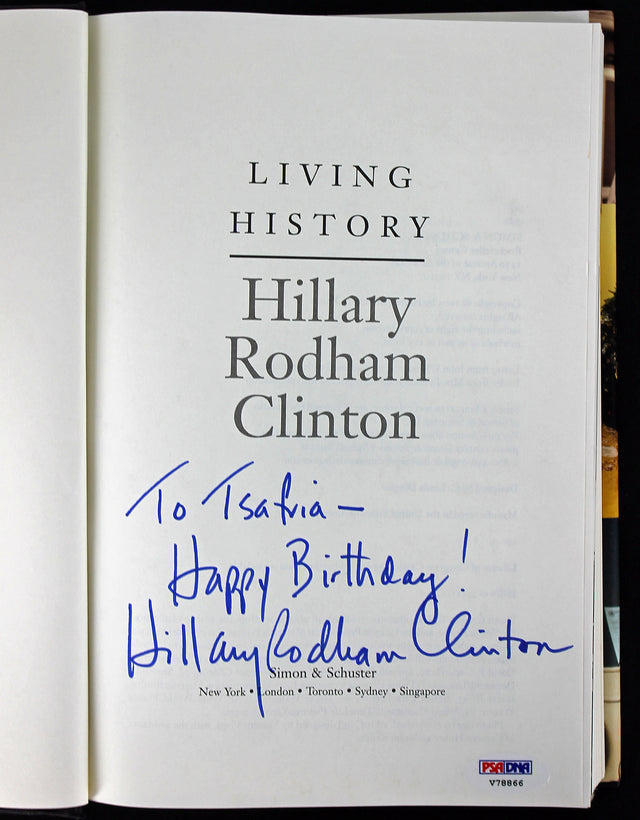 LIVING
HISTORY
Hillary
Rodham
Clinton
To Tsafria —
Happy Birthday!
Hillary Rodham Clinton
Simon & Schuster
New York • London • Toronto • Sydney • Singapore
PSA DNA
V78866